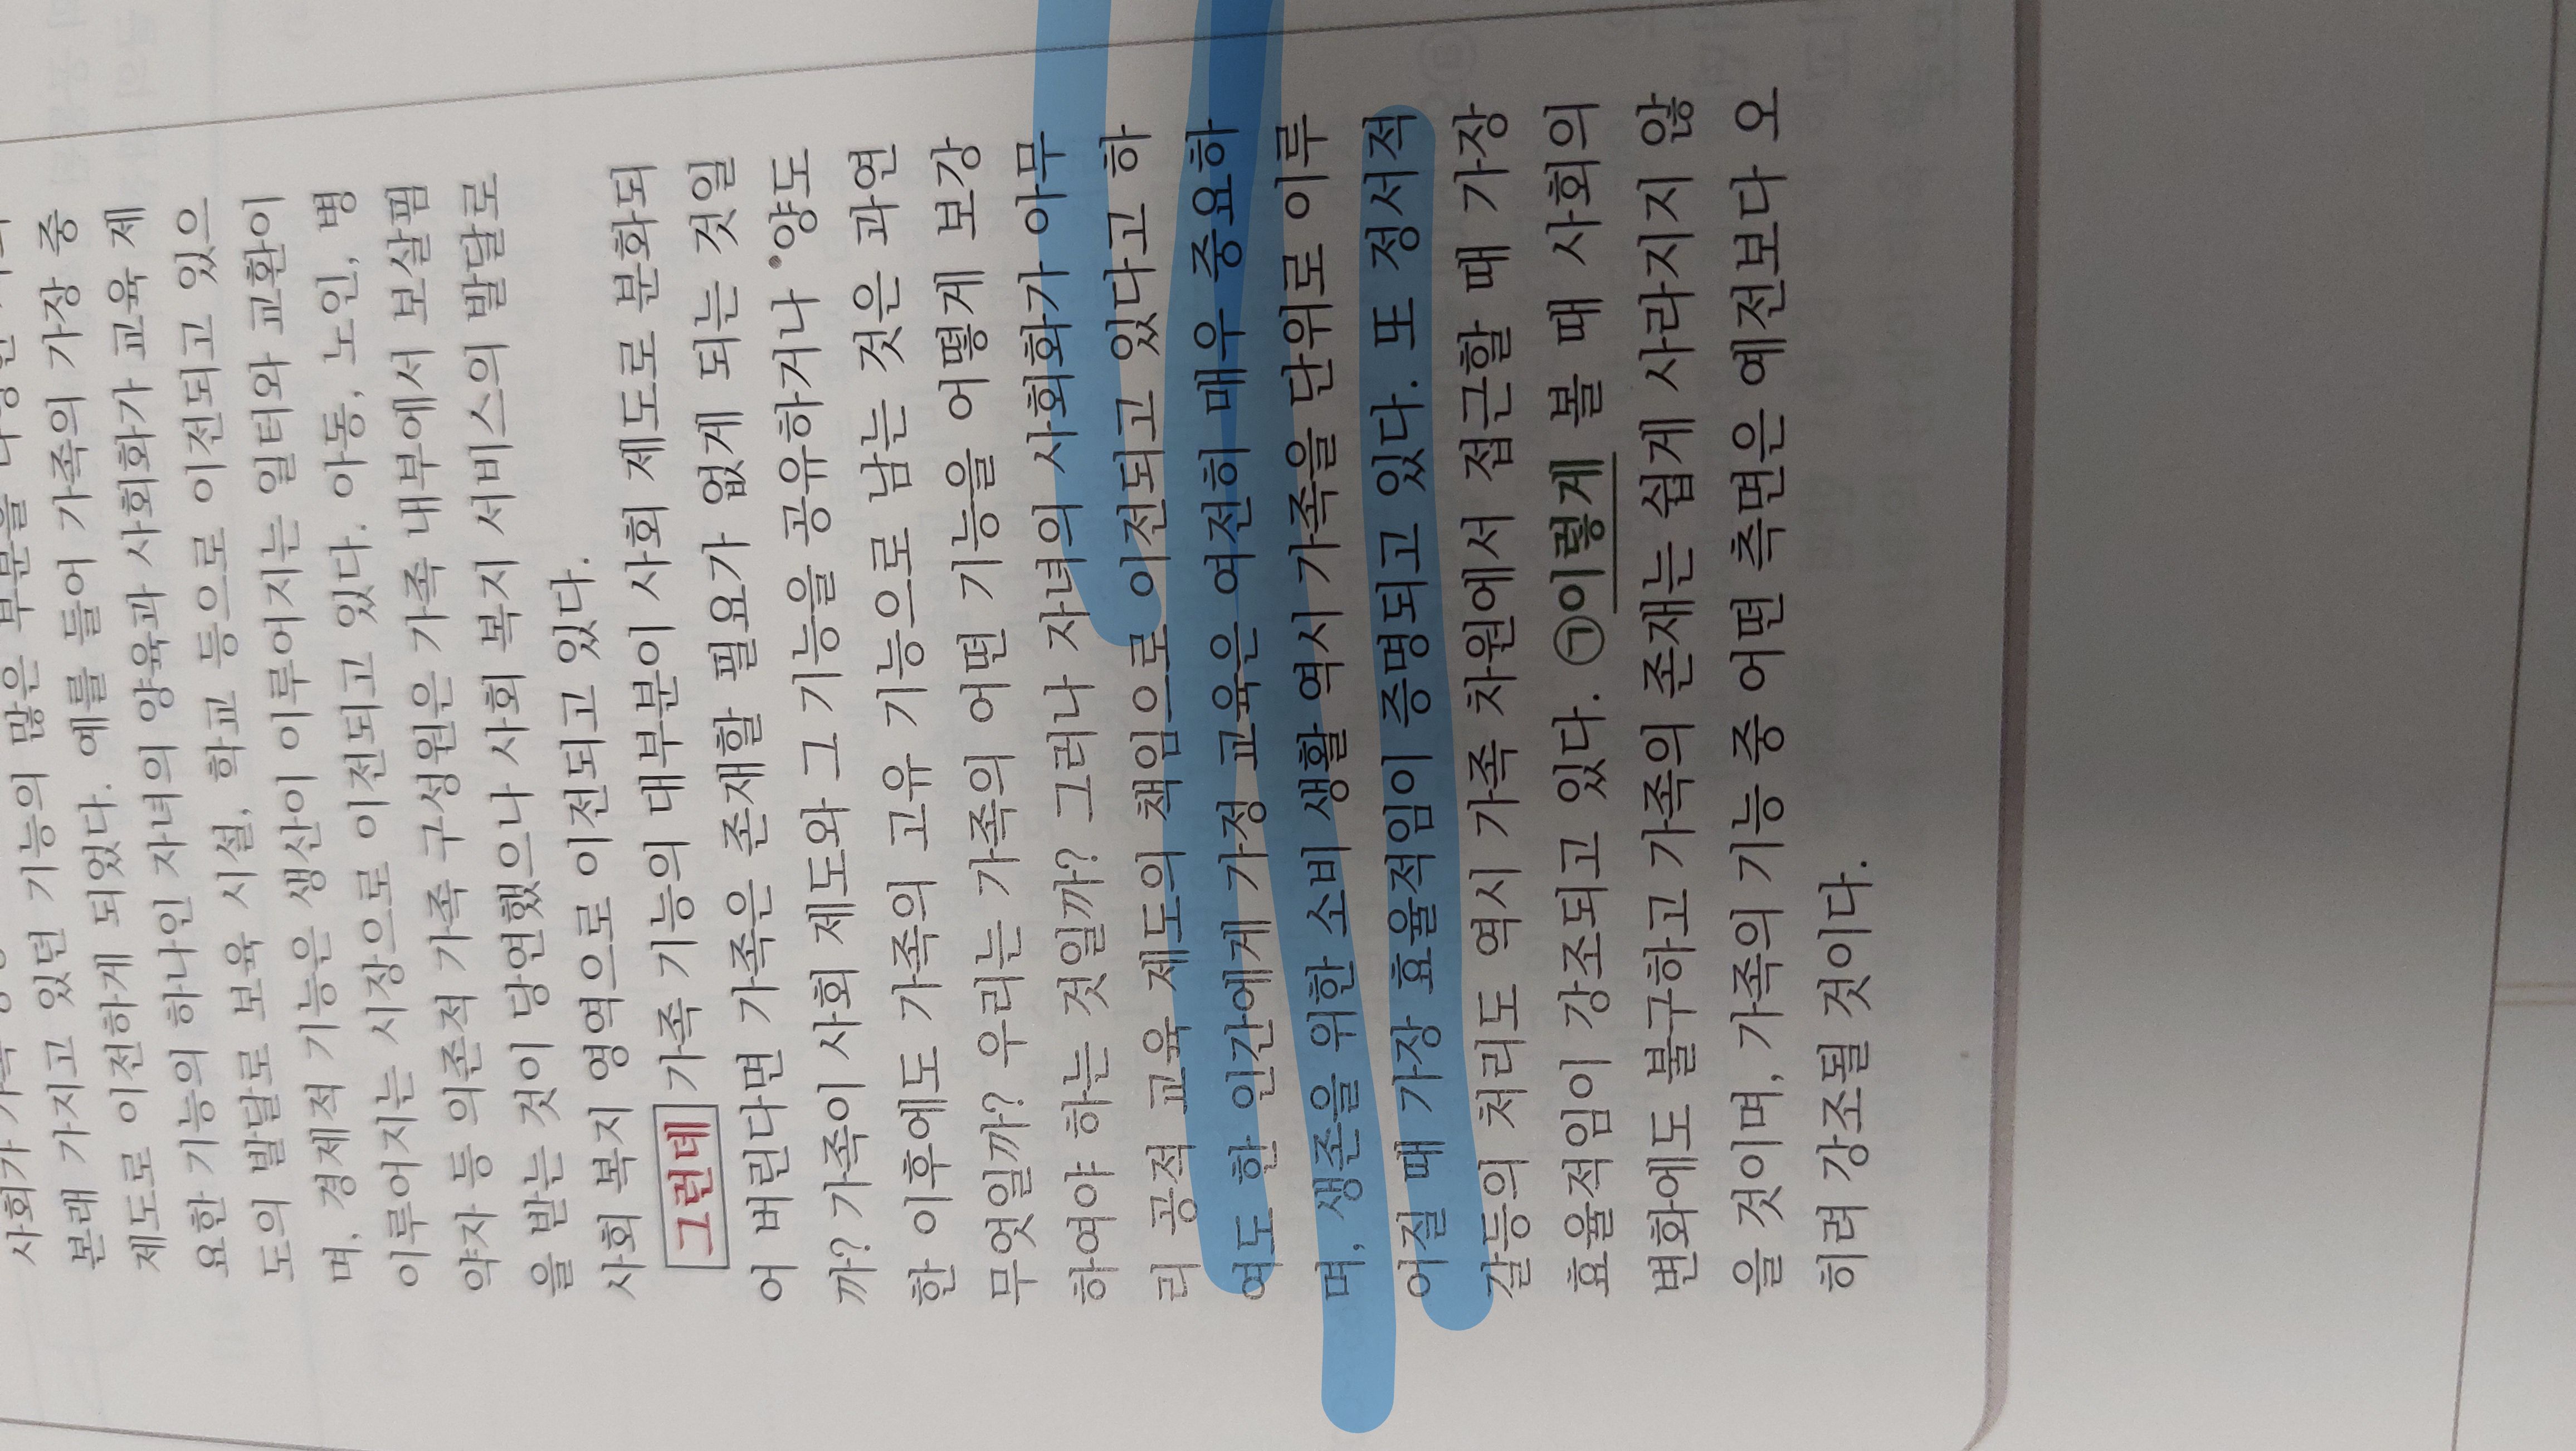 본래 가지고 있던 기능의 많은 부분을
제도로 이전하게 되었다. 예를 들어 가족의 가장 중
요한 기능의 하나인 자녀의 양육과 사회화가 교육 제
도의 발달로 보육 시설, 학교 등으로 이전되고 있으
며, 경제적 기능은 생산이 이루어지는 일터와 교환이
이루어지는 시장으로 이전되고 있다. 아동, 노인, 병
약자 등 의존적 가족 구성원은 가족 내부에서 보살핌
을 받는 것이 당연했으나 사회 복지 서비스의 발달로
사회 복지 영역으로 이전되고 있다.
그런데 가족 기능의 대부분이 사회 제도로 분화되
어 버린다면 가족은 존재할 필요가 없게 되는 것일
까? 가족이 사회 제도와 그 기능을 공유하거나 •양도
한 이후에도 가족의 고유 기능으로 남는 것은 과연
무엇일까? 우리는 가족의 어떤 기능을 어떻게 보강
하여야 하는 것일까? 그러나 자녀의 사회화가 아무
리 공적 교육 제도의 책임으로 이전되고 있다고 하
여도 한 인간에게 가정 교육은 여전히 매우 중요하
며, 생존을 위한 소비 생활 역시 가족을 단위로 이루
어질 때 가장 효율적임이 증명되고 있다. 또 정서적
갈등의 처리도 역시 가족 차원에서 접근할 때 가장
효율적임이 강조되고 있다. ㉠이렇게 볼 때 사회의
변화에도 불구하고 가족의 존재는 쉽게 사라지지 않
을 것이며, 가족의 기능 중 어떤 측면은 예전보다 오
히려 강조될 것이다.